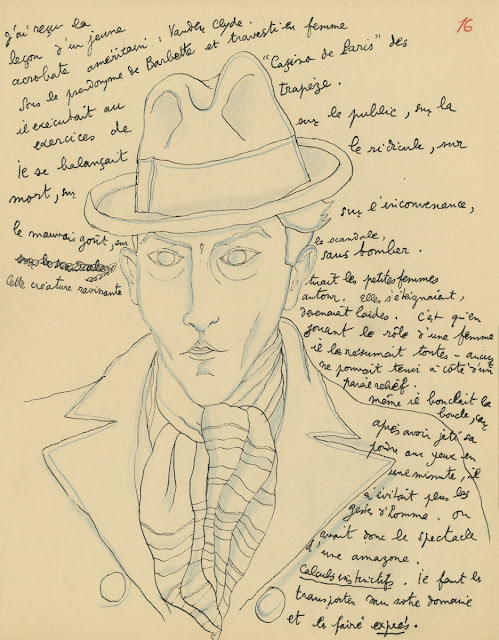 16
J'ai reçu la
leçon d'un jeune
acrobate américain : Vander Clyde.
Sous le pseudonyme de Barbette et travesti en femme
il exécutait au "Casino de Paris" des
exercices de trapèze.
Il se balançait sur le public, sur la
mort, sur le ridicule, sur
le mauvais goût, sur l'inconvenance,
le scandale,
sans tomber.
Cette créature ravissante tuait les petites femmes
autour. Elles s'éteignaient,
devenait laides. C'est qu'en
jouant le rôle d'une femme
il les résumait toutes – aucune
ne pouvait tenir à côté d'un
pareil relief.
même il bouclait la
boucle, car
après avoir jeté sa
poudre aux yeux en
une minute, il
n'évitait plus les
gestes d'homme. On
avait donc le spectacle
d'une amazone.
Calculs instinctifs. Il faut les
transporter dans notre domaine
et les faire exprès.